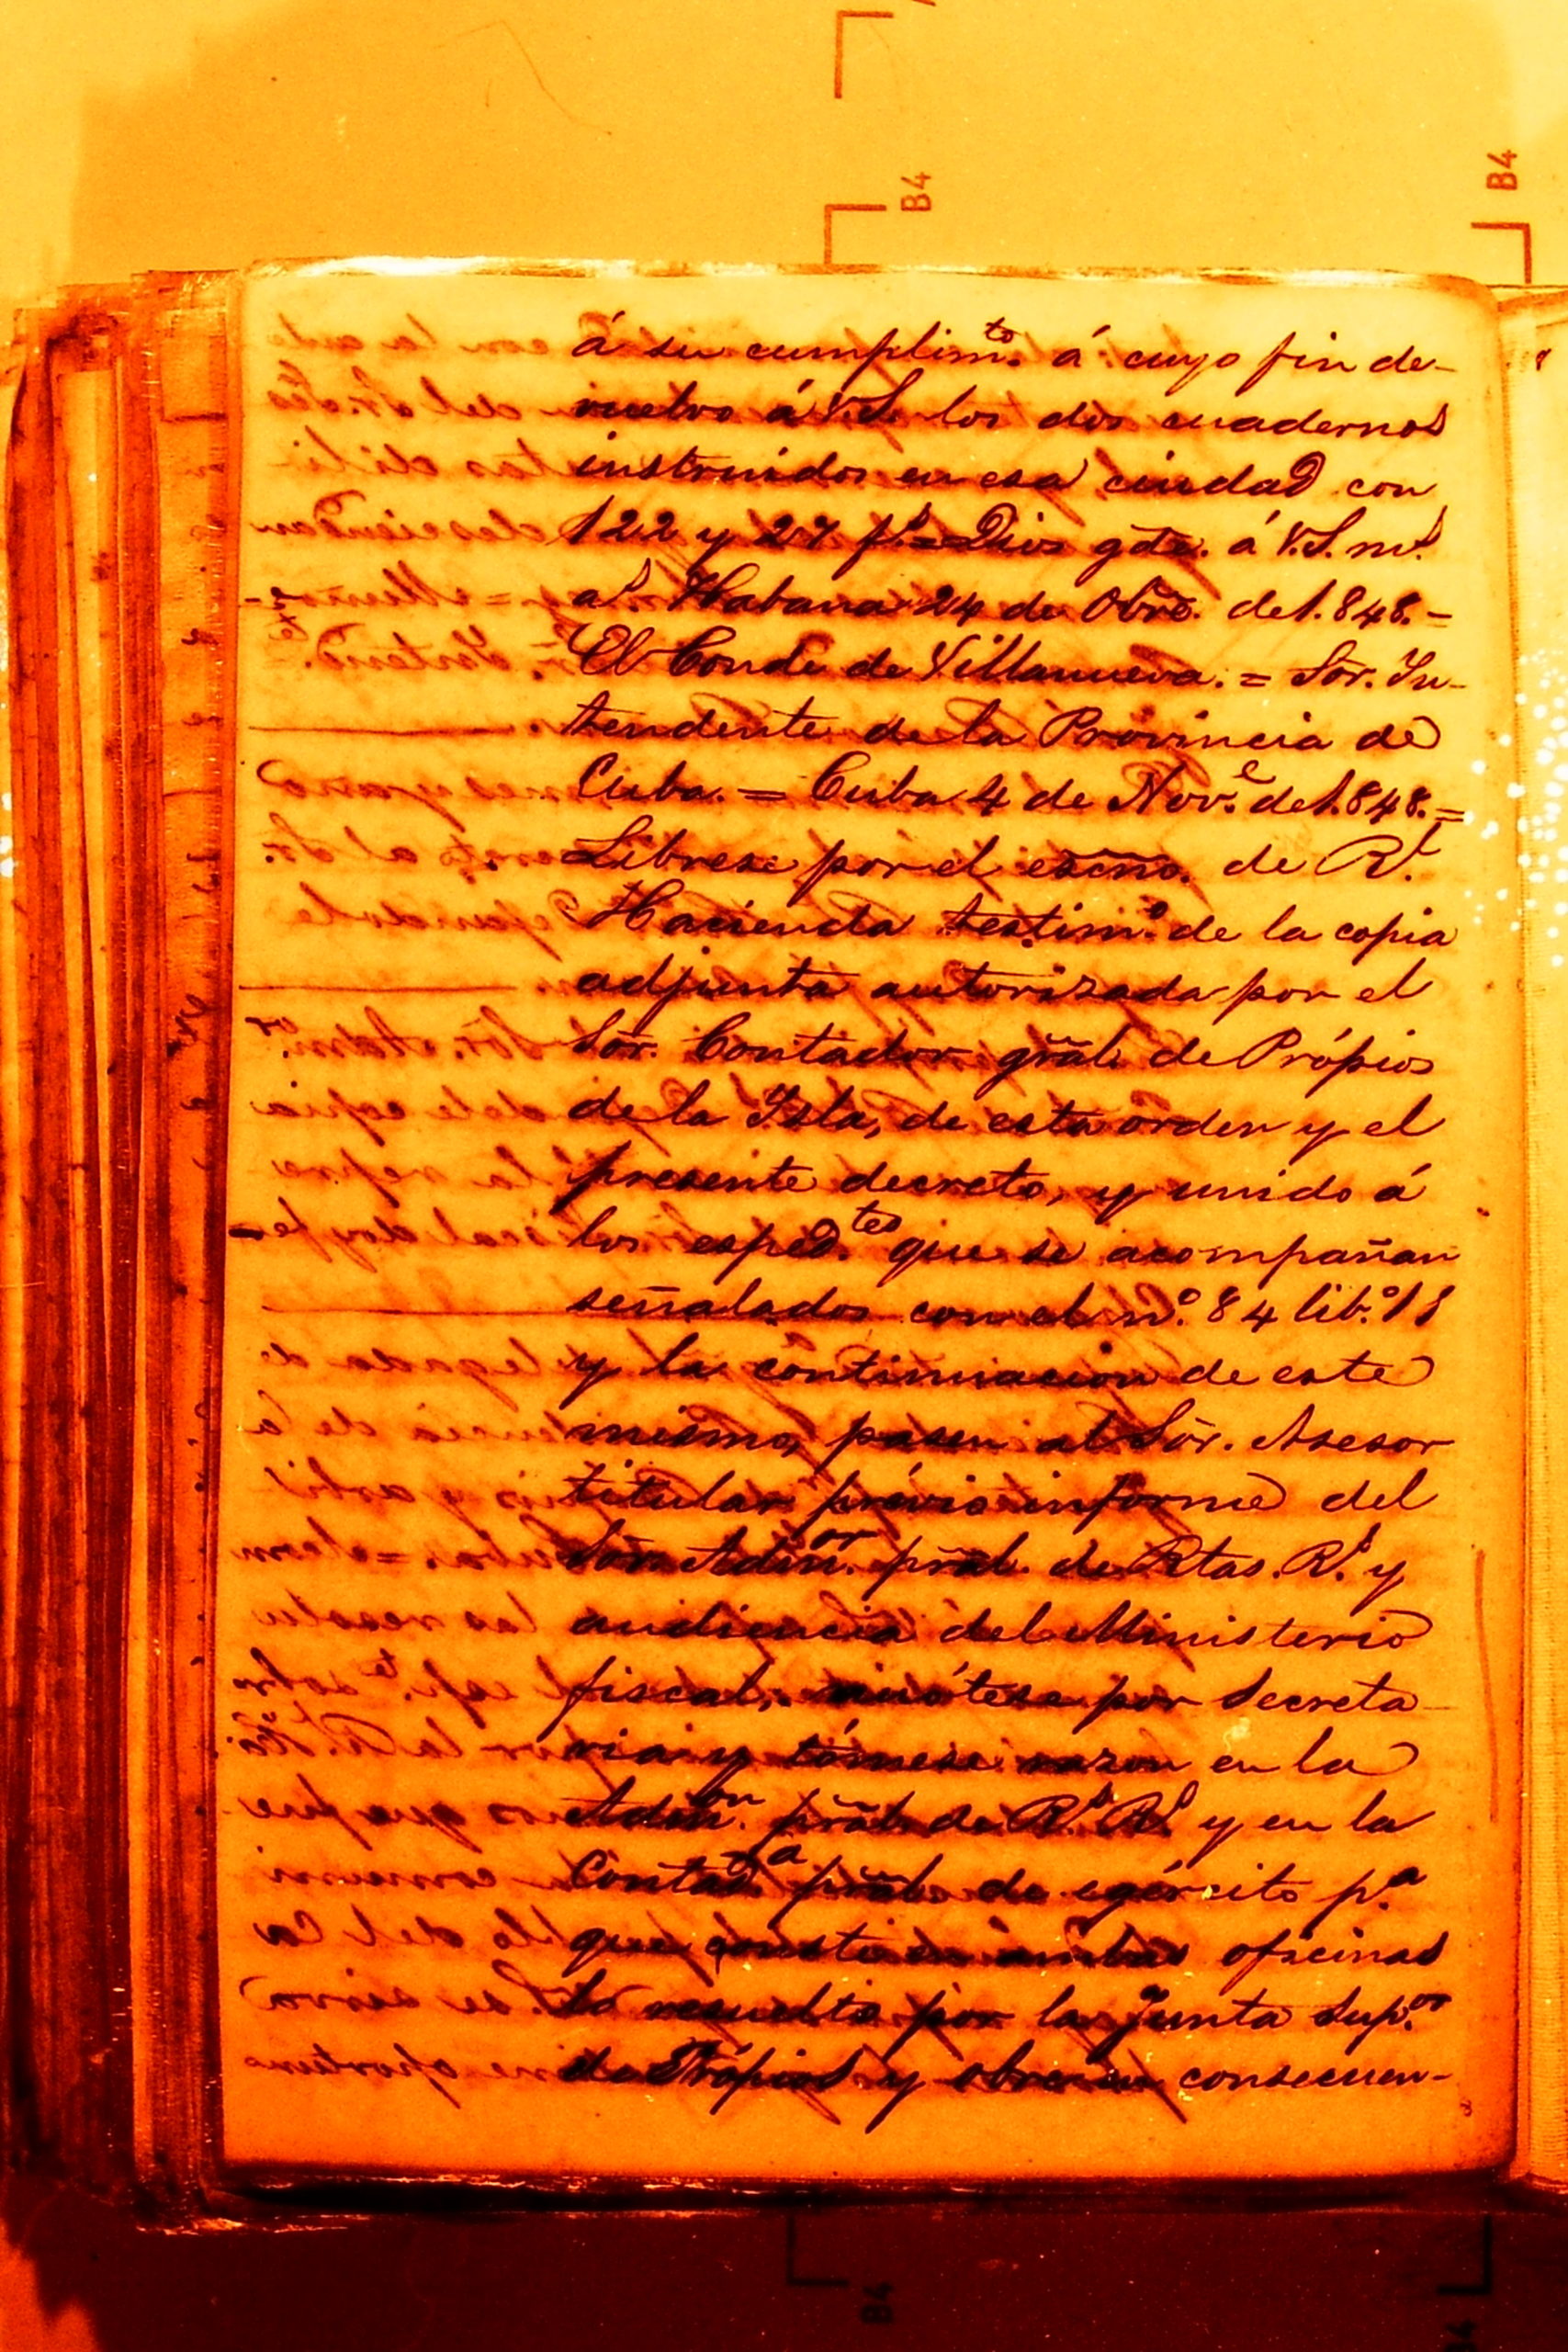 B4
B4
á su cumplim.to á cuyo fin de-
vuelvo á V.S. los dos cuadernos
instruidos en esa ciudad con
122 y 27 f.s = Dios gde. á V.S. m.s
a.s Habana 24 de Obre. de 1.848. =
El Conde de Villanueva. = Sor. In-
tendente de la Provincia de
Cuba. = Cuba 4 de Nov.e de 1.848. =
Librese por el esc̃no. de R.l
Hacienda testim.o de la copia
adjunta autorizada por el
Sor. Contador gr̃al. de Própios
de la Isla, de esta orden y el
presente decreto, y unido á
los esped.tes que se acompañan
señalados con el n.o 84 lib.o 11
y la continuacion de este
mismo, pasen al Sor. Asesor
titular prévio informe del
Sor. Adm.or pr̃al. de Rtas. R.s y
audiencia del Ministerio
fiscal, anótese por Secreta-
ria y tómese razon en la
Adm.on pr̃al. de R.s R.s y en la
Contad.a pr̃al. de egército p.a
que conste en ámbas oficinas
lo resuelto por la Junta Sup.or
de Própios y obre en consecuen-
B4